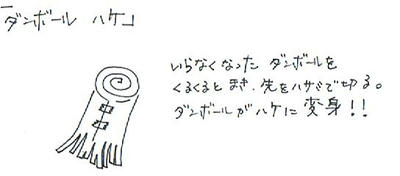 「ダンボール ハケ」
いらなくなった ダンボールを
くるくるとまき、先をハサミで切る。
ダンボールがハケに変身!!